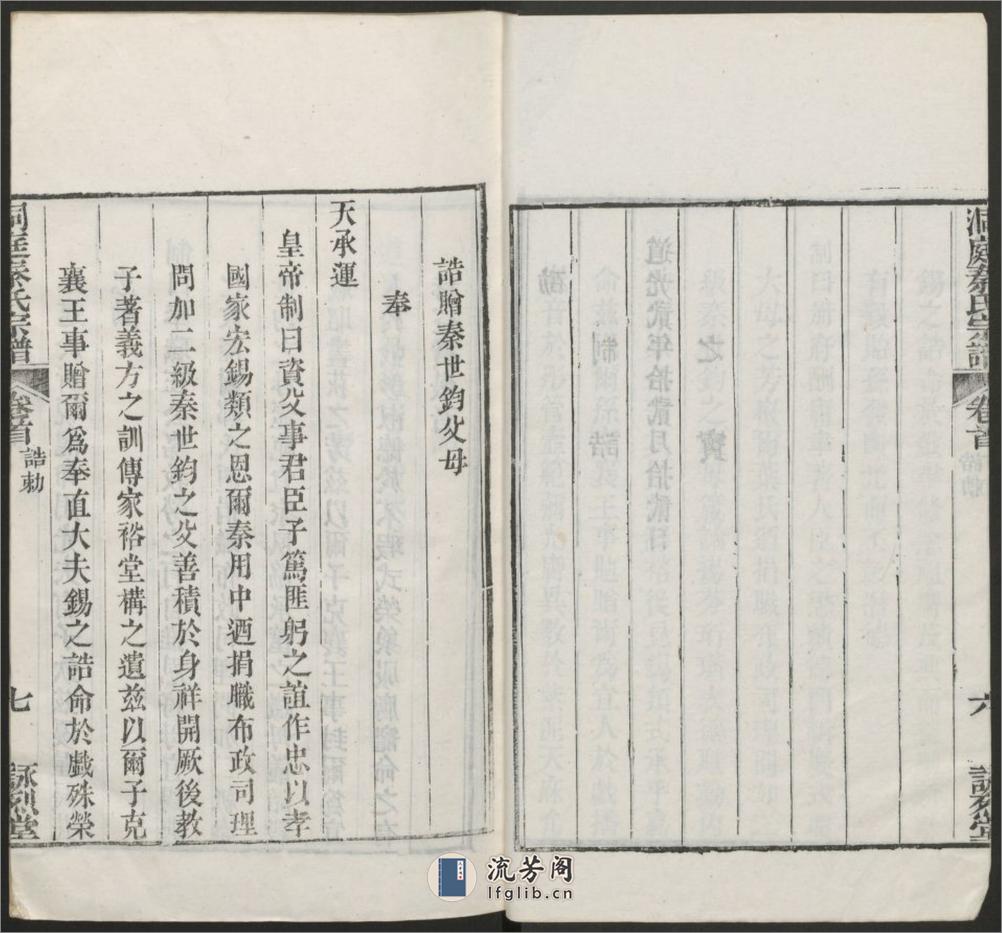 洞庭秦氏宗譜
卷首
誥勅
六
詠烈堂
誥贈秦世鈞父母
奉
天承運
皇帝制曰資父事君臣子篤匪躬之誼作忠以孝
國家宏錫類之恩爾秦用中迺捐職布政司理
問加二級秦世鈞之父善積於身祥開厥後教
子著義方之訓傳家裕堂構之遺茲以爾子克
襄王事贈爾爲奉直大夫錫之誥命於戲殊榮
洞庭秦氏宗譜
卷首
誥勅
七
詠烈堂
流芳阁
lfglib.cn